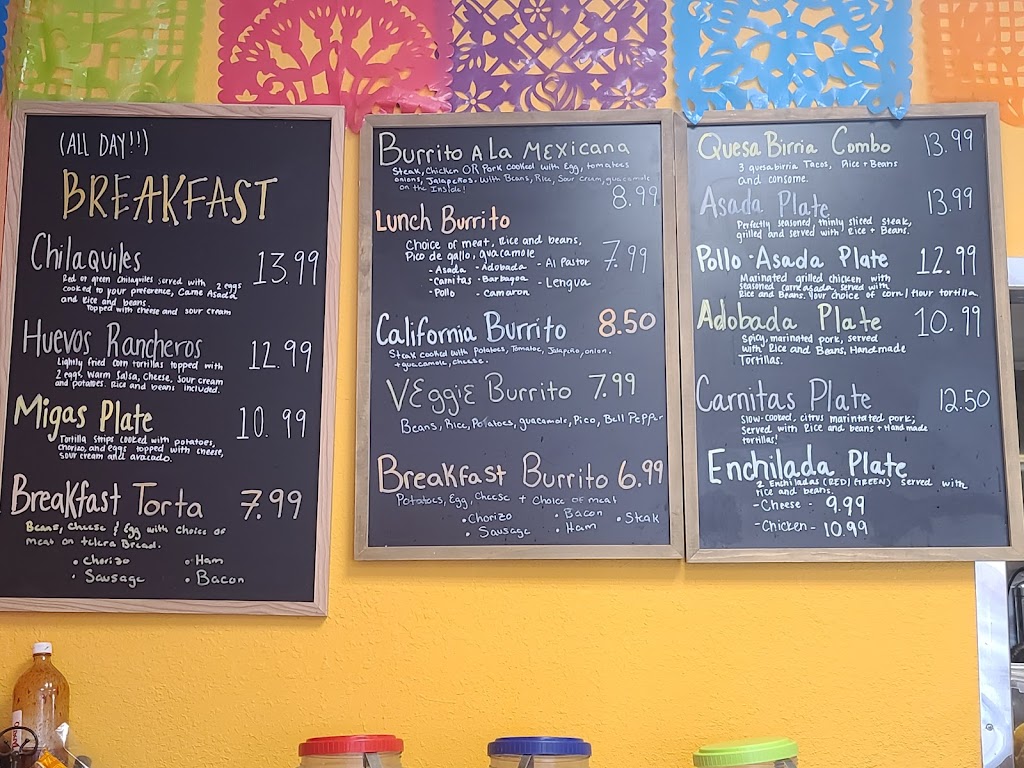 (ALL DAY!!)
BREAKFAST
Chilaquiles 13.99
Red or green chilaquiles served with 2 eggs
cooked to your preference, Carne Asada
and Rice and beans.
Topped with cheese and sour cream
Huevos Rancheros 12.99
Lightly fried corn tortillas topped with
2 eggs, warm salsa, cheese, sour cream
and potatoes. Rice and beans included.
Migas Plate 10.99
Tortilla strips cooked with potatoes,
chorizo, and eggs topped with cheese,
sour cream and avacado.
Breakfast Torta 7.99
Beans, cheese & Egg with choice of
Meat on telera Bread.
• Chorizo • Ham
• Sausage • Bacon
Burrito A La Mexicana
Steak, Chicken OR Pork cooked with Egg, tomatoes
onions, Jalapeños. With Beans, Rice, Sour cream, guacamole
on the Inside! 8.99
Lunch Burrito
Choice of meat, Rice and beans,
Pico de gallo, guacamole 7.99
- Asada - Adobada - Al Pastor
- Carnitas - Barbagoa - Lengua
- Pollo - Camaron
California Burrito 8.50
Steak cooked with Potatoes, Tomatoe, Jalapeño, onion.
+ guacamole, cheese.
Veggie Burrito 7.99
Beans, Rice, Potatoes, guacamole, Pico, Bell Peppar
Breakfast Burrito 6.99
Potatoes, Egg, Cheese + Choice of meat
• Chorizo • Bacon • Steak
• Sausage • Ham
Quesa Birria Combo 13.99
3 quesabirria Tacos, Rice + Beans
and consome.
Asada Plate 13.99
Perfectly seasoned, thinly sliced steak,
grilled and served with Rice + Beans.
Pollo-Asada Plate 12.99
Marinated grilled chicken with
seasoned carne asada, served with
Rice and Beans. Your choice of corn/flour tortilla
Adobada Plate 10.99
Spicy, marinated pork, served
with Rice and Beans, Handmade
Tortillas.
Carnitas Plate 12.50
Slow-cooked, citrus marintated pork;
Served with Rice and beans + Handmade
tortillas!
Enchilada Plate
2 Enchiladas (RED/GREEN) served with
rice and beans.
- Cheese - 9.99
- Chicken - 10.99